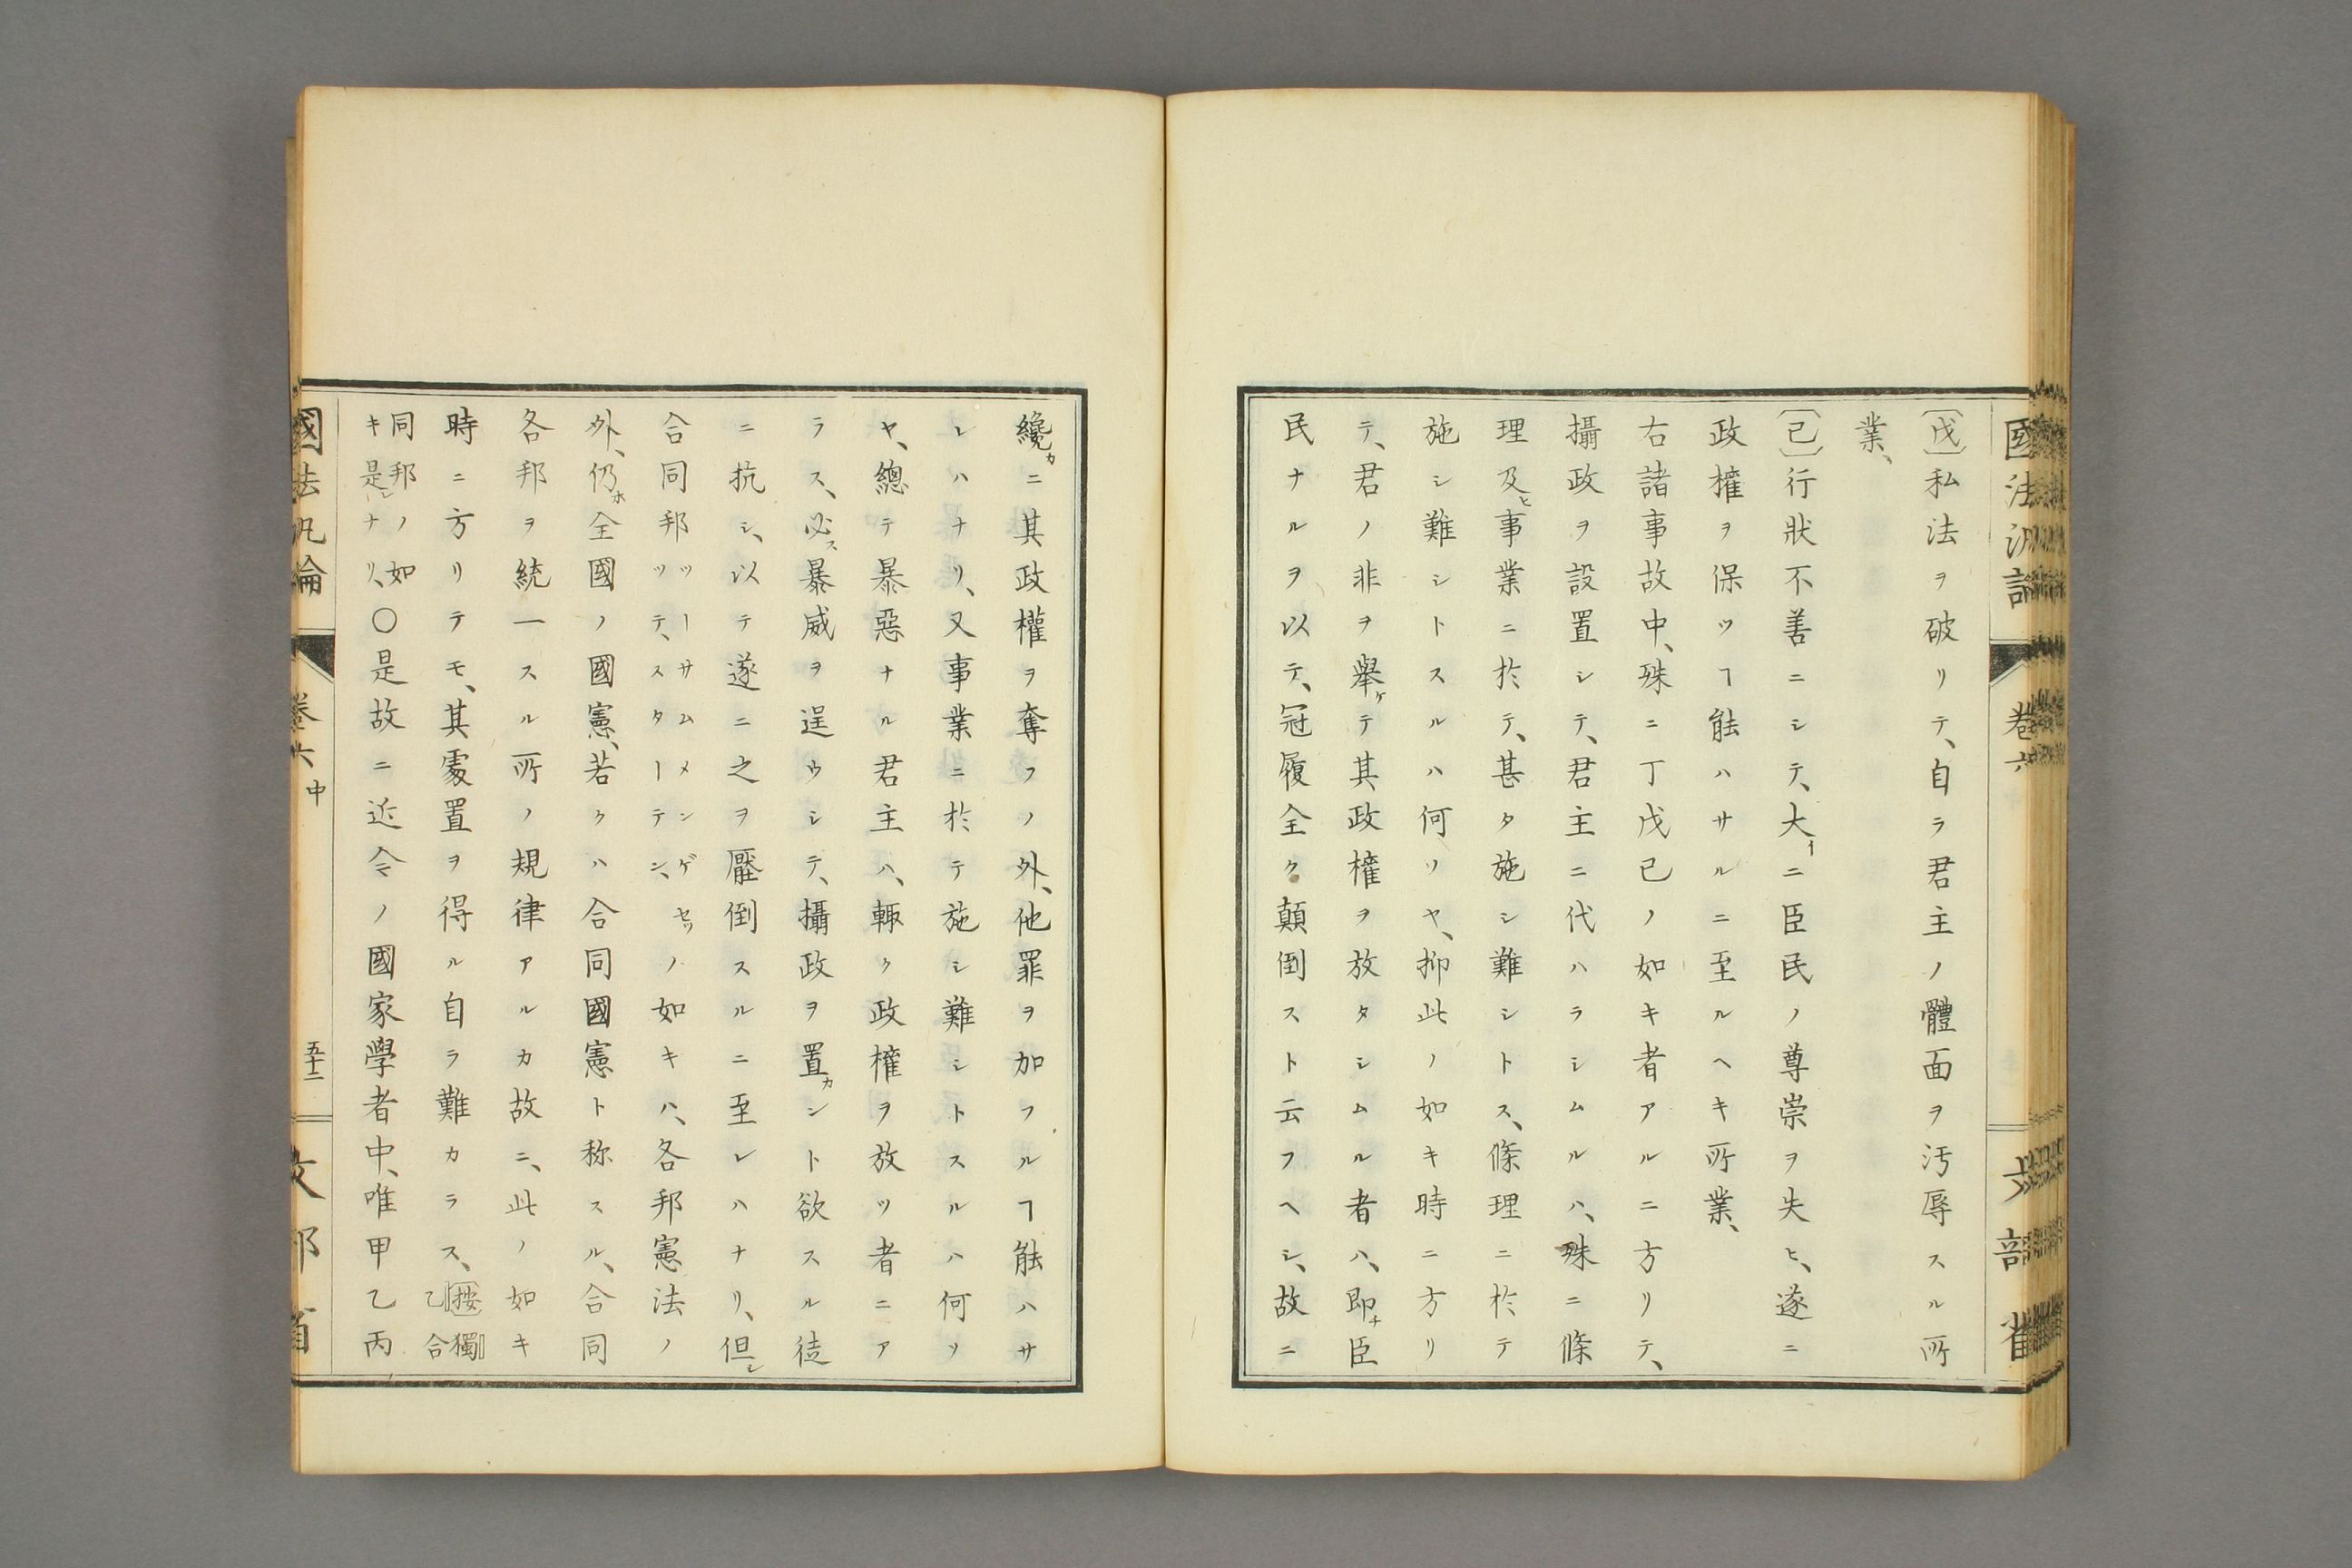 國法汎論
卷六
文部省
〔戊〕私法ヲ破リテ、自ラ君主ノ體面ヲ汚辱スル所
業、
〔己〕行狀不善ニシテ、大イニ臣民ノ尊崇ヲ失ヒ、遂ニ
政權ヲ保ツヿ能ハサルニ至ルヘキ所業、
右諸事故中、殊ニ丁戊己ノ如キ者アルニ方リテ、
攝政ヲ設置シテ、君主ニ代ハラシムルハ、殊ニ條
理及ヒ事業ニ於テ、甚タ施シ難シトス、條理ニ於テ
施シ難シトスルハ何ソヤ、抑此ノ如キ時ニ方リ
テ、君ノ非ヲ舉ケテ其政權ヲ放タシムル者ハ、即チ臣
民ナルヲ以テ、冠履全ク顛倒スト云フヘシ、故ニ
纔カニ其政權ヲ奪フノ外、他罪ヲ加フルヿ能ハサ
レハナリ、又事業ニ於テ施シ難シトスルハ何ソ
ヤ、總テ暴惡ナル君主ハ、輙ク政權ヲ放ツ者ニア
ラス、必ス暴威ヲ逞ウシテ、攝政ヲ置カント欲スル徒
ニ抗シ、以テ遂ニ之ヲ壓倒スルニ至レハナリ、但シ
合同邦ツーサムメンゲセッツテ、スターテンノ如キハ、各邦憲法ノ
外、仍ホ全國ノ國憲、若クハ合同國憲ト称スル、合同
各邦ヲ統一スル所ノ規律アルカ故ニ、此ノ如キ
時ニ方リテモ、其處置ヲ得ル自ラ難カラス、〔按〕獨乙合
同邦ノ如キ是レナリ、〇是故ニ近今ノ國家學者中、唯甲乙丙
國法汎論
卷六中
五十二
文部省